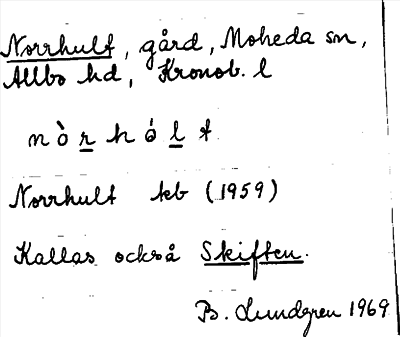 Norrhult, gård, Moheda sn,
Allbo hd, Kronob. l
nòrhólt
Norrhult kb (1959)
Kallas också Skiften.
B. Lundgren 1969